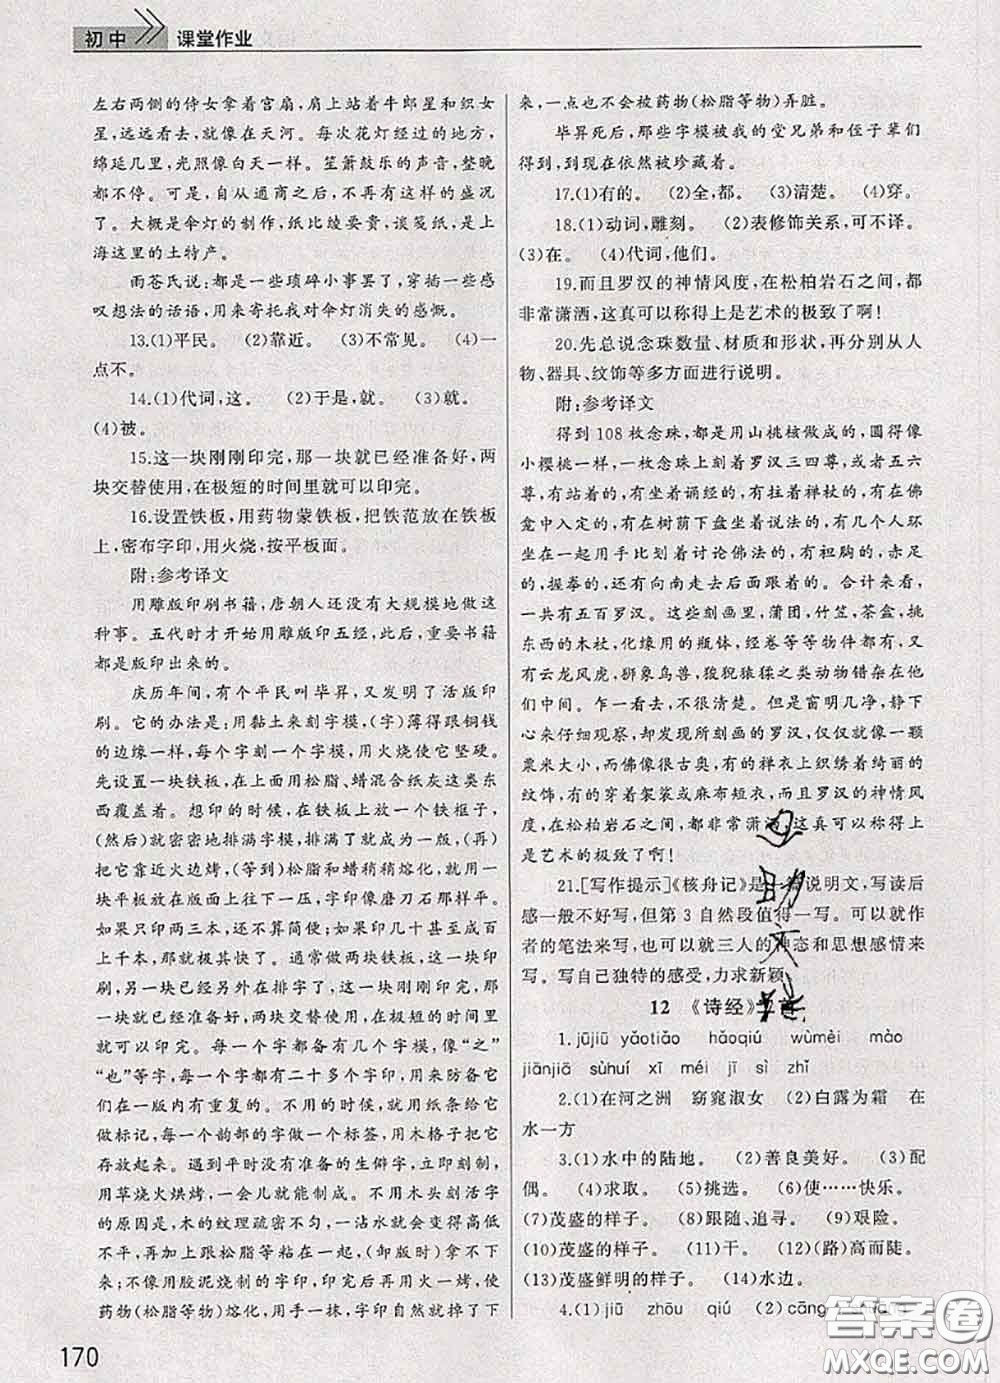 初中 课堂作业
左右两侧的侍女拿着宫扇,肩上站着牛郎星和织女
星,远远看去,就像在天河。每次花灯经过的地方,
绵延几里,光照像白天一样。笙箫鼓乐的声音,整晚
都不停。可是,自从通商之后,不再有这样的盛况
了。大概是伞灯的制作,纸比绫要贵,谈笺纸,是上
海这里的土特产。
雨苍氏说:都是一些琐碎小事罢了,穿插一些感
叹想法的话语,用来寄托我对伞灯消失的感慨。
13.(1)平民。 (2)靠近。 (3)不常见。 (4)一
点不。
14.(1)代词,这。 (2)于是,就。 (3)就。
(4)被。
15.这一块刚刚印完,那一块就已经准备好,两
块交替使用,在极短的时间里就可以印完。
16.设置铁板,用药物蒙铁板,把铁范放在铁板
上,密布字印,用火烧,按平板面。
附:参考译文
用雕版印刷书籍,唐朝人还没有大规模地做这
种事。五代时才开始用雕版印五经,此后,重要书籍
都是版印出来的。
庆历年间,有个平民叫毕昇,又发明了活版印
刷。它的办法是:用黏土来刻字模,(字)薄得跟铜钱
的边缘一样,每个字刻一个字模,用火烧使它坚硬。
先设置一块铁板,在上面用松脂、蜡混合纸灰这类东
西覆盖着。想印的时候,在铁板上放一个铁框子,
(然后)就密密地排满字模,排满了就作为一版,(再)
把它靠近火边烤,(等到)松脂和蜡稍稍熔化,就用一
块平板放在版面上往下一压,字印像磨刀石那样平。
如果只印两三本,还不算简便;如果印几十甚至成百
上千本,那就极其快了。通常做两块铁板,这一块在
印刷,那一块已另外在排字了,这一块刚刚印完,那
一块就已经准备好,两块交替使用,在极短的时间里
就可以印完。每一个字都备有几个字模,像“之”
“也”等字,每个字都有二十多个字印,用来防备它们
在一版内有重复的。不用的时候,就用纸条给它们
做标记,每一个韵部的字做一个标签,用木格子把它
存放起来。遇到平时没有准备的生僻字,立即刻制,
用草烧火烘烤,一会儿就能制成。不用木头刻活字
的原因是,木的纹理疏密不匀,一沾水就会变得高低
不平,再加上跟松脂等粘在一起,(卸版时)拿不下
来;不像用胶泥烧制的字印,印完后再用火一烤,使
药物(松脂等物)熔化,用手一抹,字印自然就掉了下
来,一点也不会被药物(松脂等物)弄脏。
毕昇死后,那些字模被我的堂兄弟和侄子辈们
得到,到现在依然被珍藏着。
17.(1)有的。 (2)全,都。 (3)清楚。 (4)穿。
18.(1)动词,雕刻。 (2)表修饰关系,可不译。
(3)在。 (4)代词,他们。
19.而且罗汉的神情风度,在松柏岩石之间,都
非常潇洒,这真可以称得上是艺术的极致了啊!
20.先总说念珠数量、材质和形状,再分别从人
物、器具、纹饰等多方面进行说明。
附:参考译文
得到108枚念珠,都是用山桃核做成的,圆得像
小樱桃一样,一枚念珠上刻着罗汉三四尊,或者五六
尊,有站着的,有坐着诵经的,有拄着禅杖的,有在佛
龛中入定的,有在树荫下盘坐着说法的,有几个人环
坐在一起用手比划着讨论佛法的,有袒胸的,赤足
的,握拳的,还有向南走去后面跟着的。合计来看,
一共有五百罗汉。这些刻画里,蒲团,竹笠,茶盒,挑
东西的木杖,化缘用的瓶钵,经卷等等物件都有,又
有云龙风虎,狮象鸟兽,狻猊猿猱之类动物错杂在他
们中间。乍一看去,不很清楚。但是窗明几净,静下
心来仔细观察,却发现所刻画的罗汉,仅仅就像一颗
粟米大小,而佛像很古奥,有的禅衣上织绣着绮丽的
纹饰,有的穿着袈裟或麻布短衣,而且罗汉的神情风
度,在松柏岩石之间,都非常潇洒,这真可以称得上
是艺术的极致了啊!
21.[写作提示]《核舟记》是一篇说明文,写读后
感一般不好写,但第3自然段值得一写。可以就作
者的笔法来写,也可以就三人的神态和思想感情来
写。写自己独特的感受,力求新颖。
12 《诗经》二首
1.jūjiū yǎotiǎo hǎoqiú wùmèi mào
jiānjiā sùhuí xī méi jī sì zhǐ
2.(1)在河之洲 窈窕淑女 (2)白露为霜 在
水一方
3.(1)水中的陆地。 (2)善良美好。 (3)配
偶。 (4)求取。 (5)挑选。 (6)使……快乐。
(7)茂盛的样子。 (8)跟随、追寻。 (9)艰险。
(10)茂盛的样子。 (11)干。 (12)(路)高而陡。
(13)茂盛鲜明的样子。 (14)水边。
4.(1)jiū zhōu qiú (2)cāng
170
答案圈
MXQE.COM